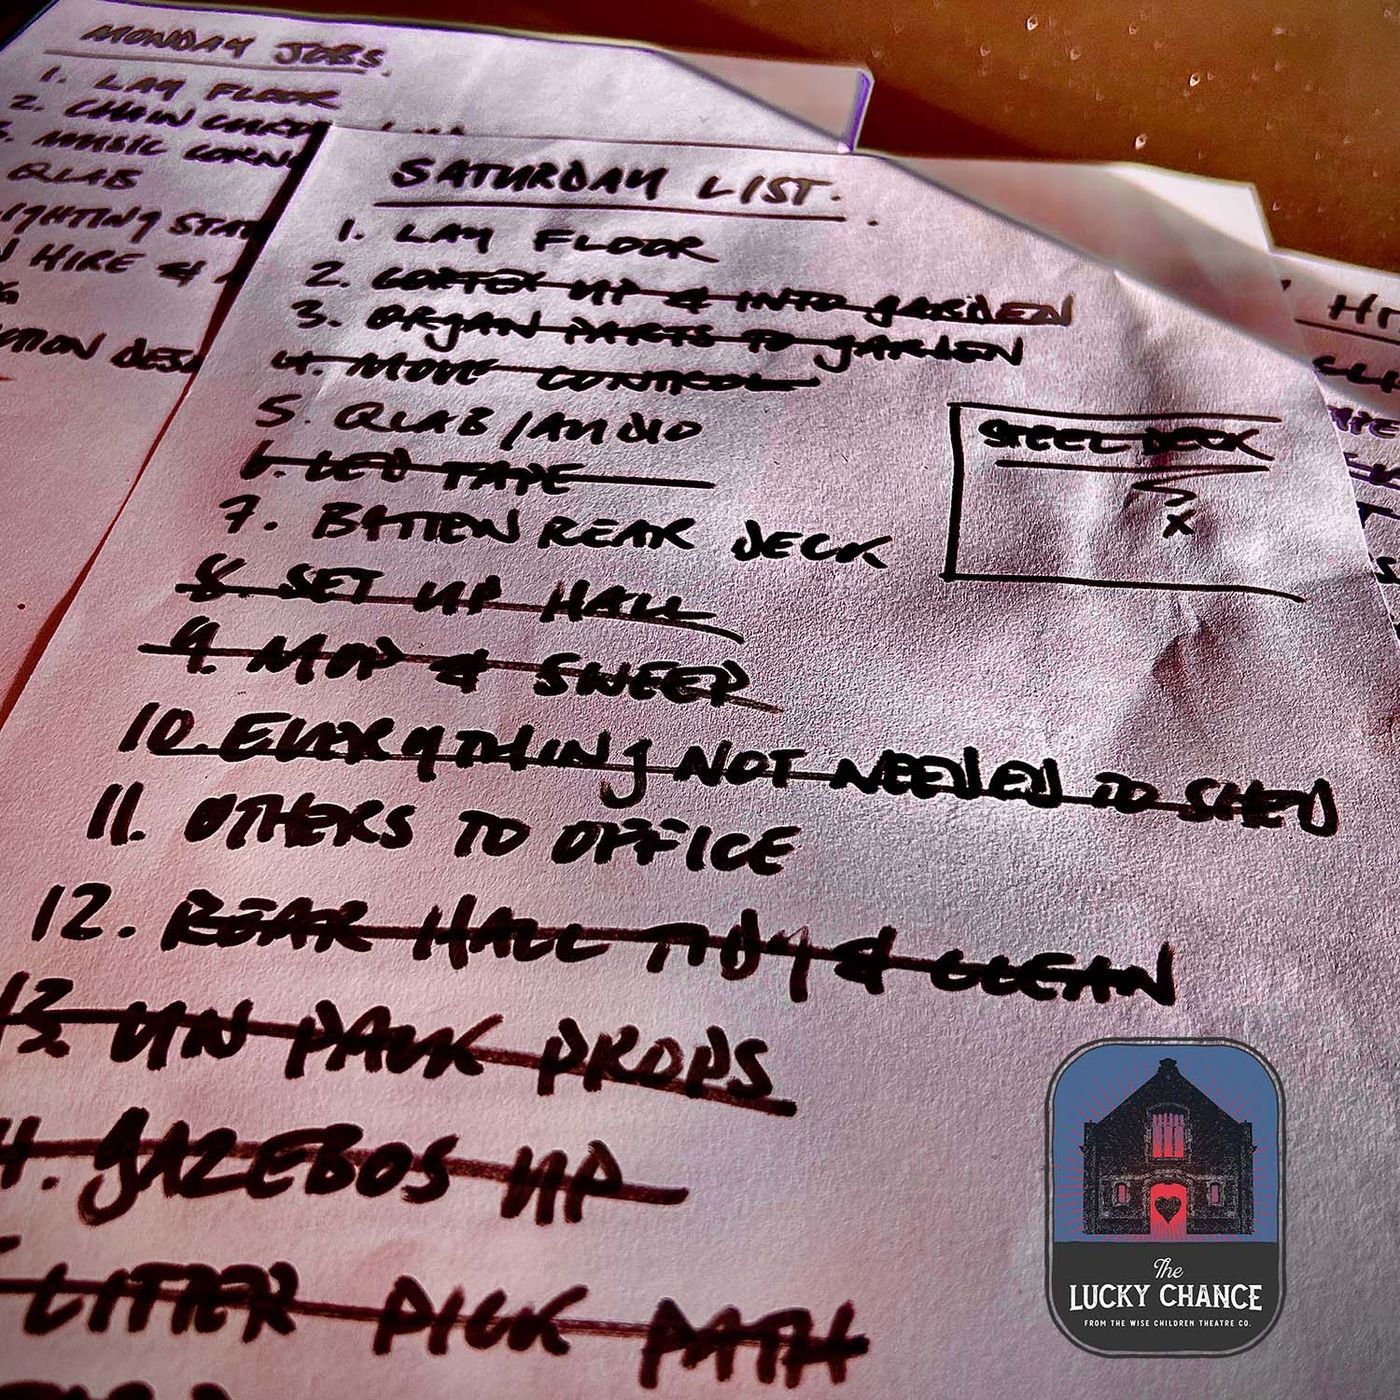 MONDAY JOBS.
1. LAY FLOOR
2. CHAIN
3. MUSIC
QLAB
LIGHTING
HIRE &
SATURDAY LIST.
1. LAY FLOOR
2. CORTEX UP & INTO GARDEN
3. ORGAN PARTS TO GARDEN
4. MOVE CONTROL
5. QLAB/AUDIO
6. LED TAPE
7. BATTEN REAR DECK
8. SET UP HALL
9. MOP & SWEEP
10. EVERYTHING NOT NEEDED TO SHED
11. OTHERS TO OFFICE
12. REAR HALL TIDY & CLEAN
13. UN PACK PROPS
GAZEBOS UP
LITTER PICK PATH
STEEL DECK
X
The
LUCKY CHANCE
FROM THE WISE CHILDREN THEATRE CO.